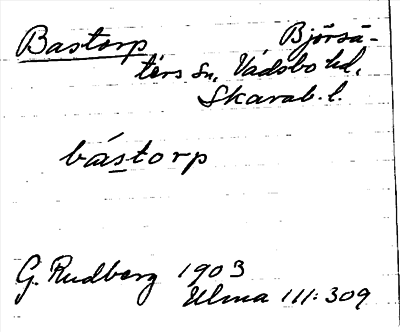 Bastorp Björsä-
ters sn, Vadsbo hd,
Skarab. l.
bástorp
G. Rudberg 1903
Ulma 111:309